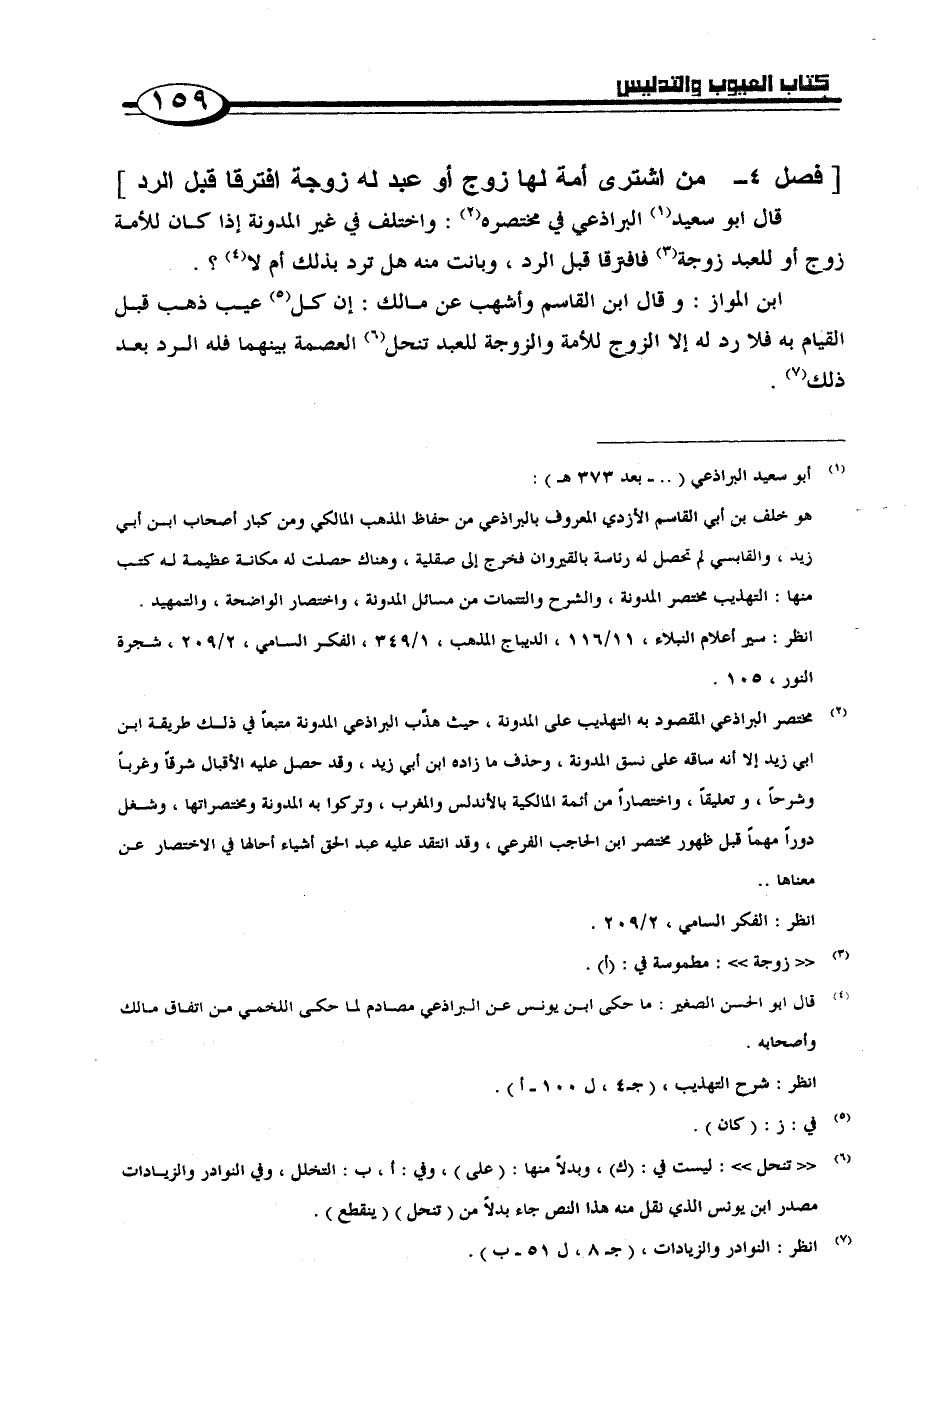 كتاب العيوب والتدليس
١٥٩
[ فصل ٤ـ من اشترى أمة لها زوج أو عبد له زوجة افترقا قبل الرد ]
قال ابو سعيد(١) البراذعي في مختصره(٢) : واختلف في غير المدونة إذا كان للأمة
زوج أو للعبد زوجة(٣) فافترقا قبل الرد ، وبانت منه هل ترد بذلك أم لا(٤) ؟ .
ابن المواز : و قال ابن القاسم وأشهب عن مالك : إن كل(٥) عيب ذهب قبل
القيام به فلا رد له إلا الزوج للأمة والزوجة للعبد تنحل(٦) العصمة بينهما فله الرد بعد
ذلك(٧) .
(١) أبو سعيد البراذعي ( .. ـ بعد ٣٧٣ هـ ) :
هو خلف بن أبي القاسم الأزدي المعروف بالبراذعي من حفاظ المذهب المالكي ومن كبار أصحاب ابن أبي
زيد ، والقابسي لم تحصل له رئاسة بالقيروان فخرج إلى صقلية ، وهناك حصلت له مكانة عظيمة له كتب
منها : التهذيب مختصر المدونة ، والشرح والتتمات من مسائل المدونة ، واختصار الواضحة ، والتمهيد .
انظر : سير أعلام النبلاء ، ١١٦/١١ ، الديباج المذهب ، ٣٤٩/١ ، الفكر السامي ، ٢٠٩/٢ ، شجرة
النور ، ١٠٥ .
(٢) مختصر البراذعي المقصود به التهذيب على المدونة ، حيث هذّب البراذعي المدونة متبعاً في ذلك طريقة ابن
ابي زيد إلا أنه ساقه على نسق المدونة ، وحذف ما زاده ابن أبي زيد ، وقد حصل عليه الأقبال شرقاً وغرباً
وشرحاً ، و تعليقاً ، واختصاراً من أئمة المالكية بالأندلس والمغرب ، وتركوا به المدونة ومختصراتها ، وشغل
دوراً مهماً قبل ظهور مختصر ابن الحاجب الفرعي ، وقد انتقد عليه عبد الحق أشياء أحالها في الاختصار عن
معناها ..
انظر : الفكر السامي ، ٢٠٩/٢ .
(٣) << زوجة >> : مطموسة في : (أ) .
(٤) قال ابو الحسن الصغير : ما حكى ابن يونس عن البراذعي مصادم لما حكى اللخمي من اتفاق مالك
وأصحابه .
انظر : شرح التهذيب ، ( جـ٤ ، ل ١٠٠ ـ أ ) .
(٥) في : ز : ( كان ) .
(٦) << تنحل >> : ليست في : (ك) ، وبدلاً منها : ( على ) ، وفي : أ ، ب : التخلل ، وفي النوادر والزيادات
مصدر ابن يونس الذي نقل منه هذا النص جاء بدلاً من ( تنحل ) ( ينقطع ) .
(٧) انظر : النوادر والزيادات ، ( جـ ٨ ، ل ٥١ ـ ب ) .